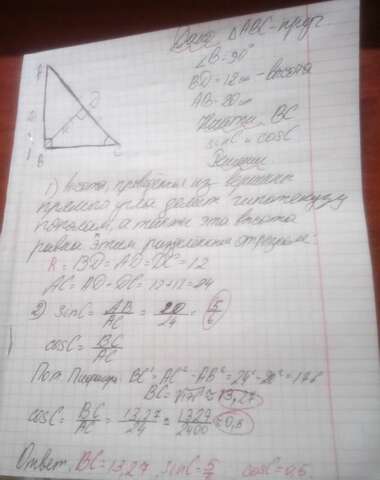 Дано: ΔABC - пруг.
∠B = 90°
BD = 12 см - высота
AB = 20 см
Найти: BC
sinC и cosC
Решение
A
D
B
C
1) Высота, проведённая из вершины
прямого угла делит гипотенузу
пополам, а также эта высота
равна этим разделённым отрезкам.
R = BD = AD = DC = 12
AC = AD + DC = 12+12 = 24
2) sinC = AB/AC = 20/24 = 5/6
cosC = BC/AC
По т. Пифагора BC² = AC² - AB² = 24² - 20² = 176
BC = √176 ≈ 13,27
cosC = BC/AC = 13,27/24 = 1327/2400 ≈ 0,5
Ответ: BC = 13,27 sinC = 5/ cosC = 0,5.